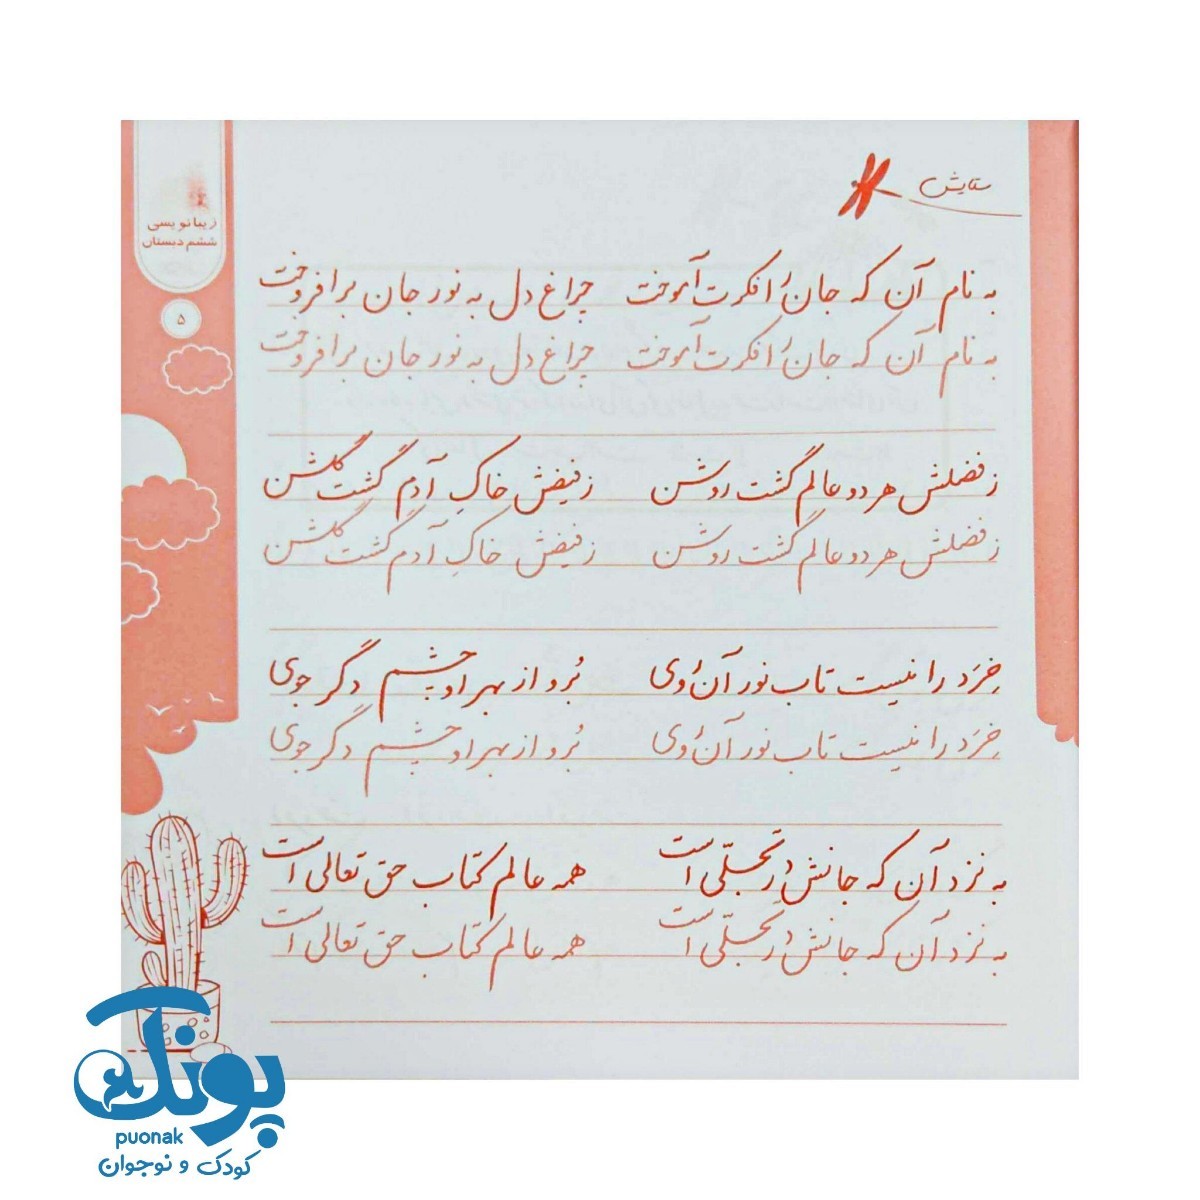 ستایش
زیبانویسی
ششم دبستان
۵
به نام آن که جان را فکرت آموخت چراغ دل به نور جان برافروخت
به نام آن که جان را فکرت آموخت چراغ دل به نور جان برافروخت
ز فضلش هر دو عالم گشت روشن ز فیضش خاکِ آدم گشت گلشن
ز فضلش هر دو عالم گشت روشن ز فیضش خاکِ آدم گشت گلشن
خِرَد را نیست تاب نور آن روی بُرو از بهر او چشم دگر جوی
خِرَد را نیست تاب نور آن روی بُرو از بهر او چشم دگر جوی
به نزد آن که جانش در تجلّی است همه عالم کتاب حق تعالی است
به نزد آن که جانش در تجلّی است همه عالم کتاب حق تعالی است
پونک
puonak
کودک و نوجوان